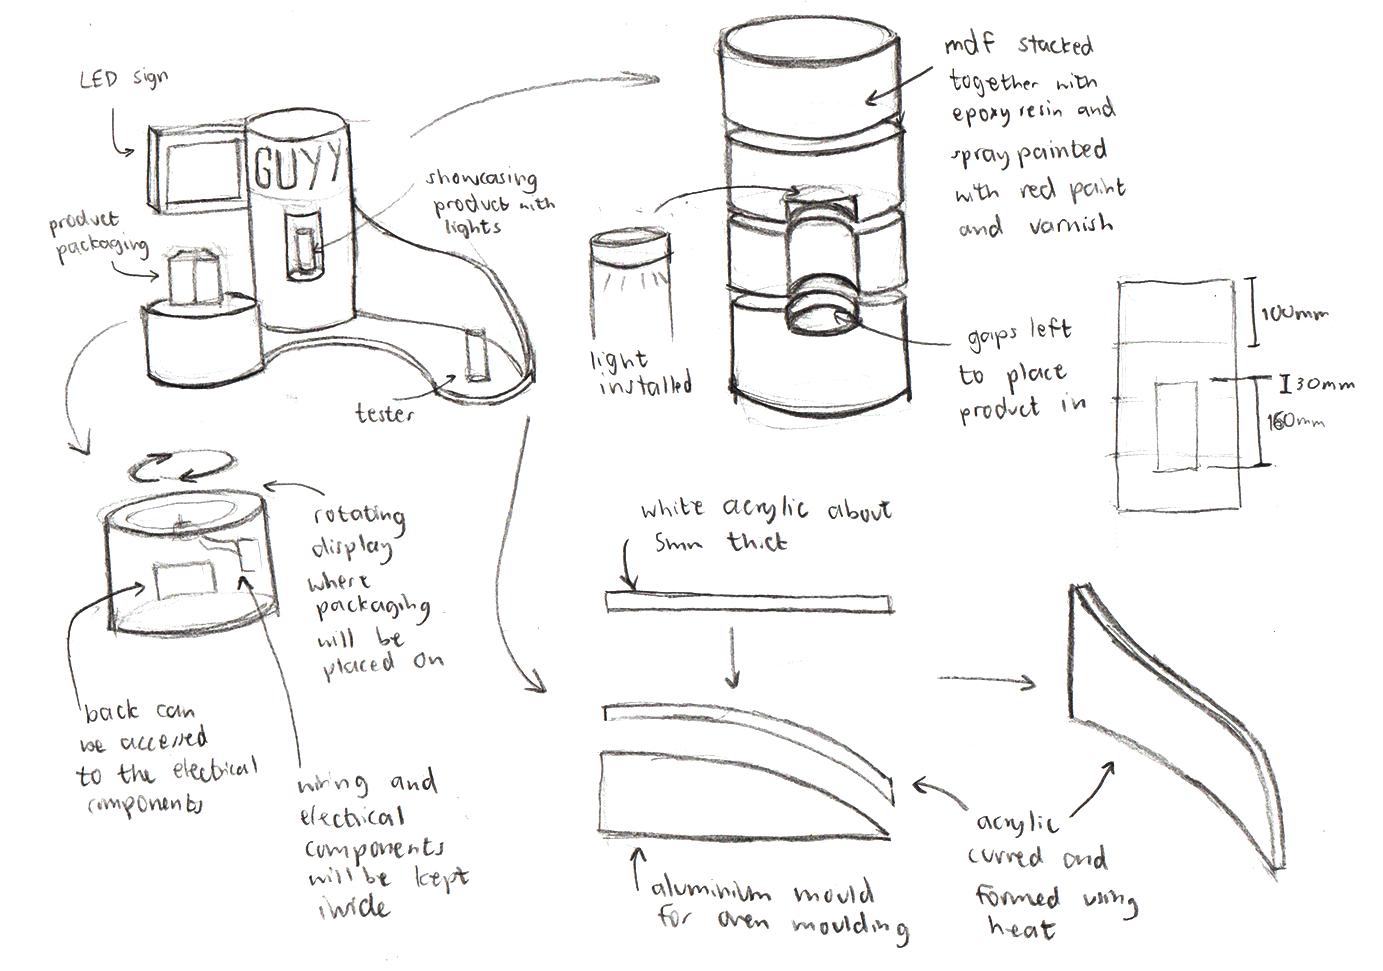 LED sign
GUYY
product
packaging
showcasing
product with
lights
tester
mdf stacked
together with
epoxy resin and
spray painted
with red paint
and varnish
light
installed
gaps left
to place
product in
100mm
30mm
160mm
rotating
display
where
packaging
will be
placed on
back can
be accessed
to the electrical
components
wiring and
electrical
components
will be kept
inside
white acrylic about
5mm thick
aluminium mould
for oven moulding
acrylic
curved and
formed using
heat